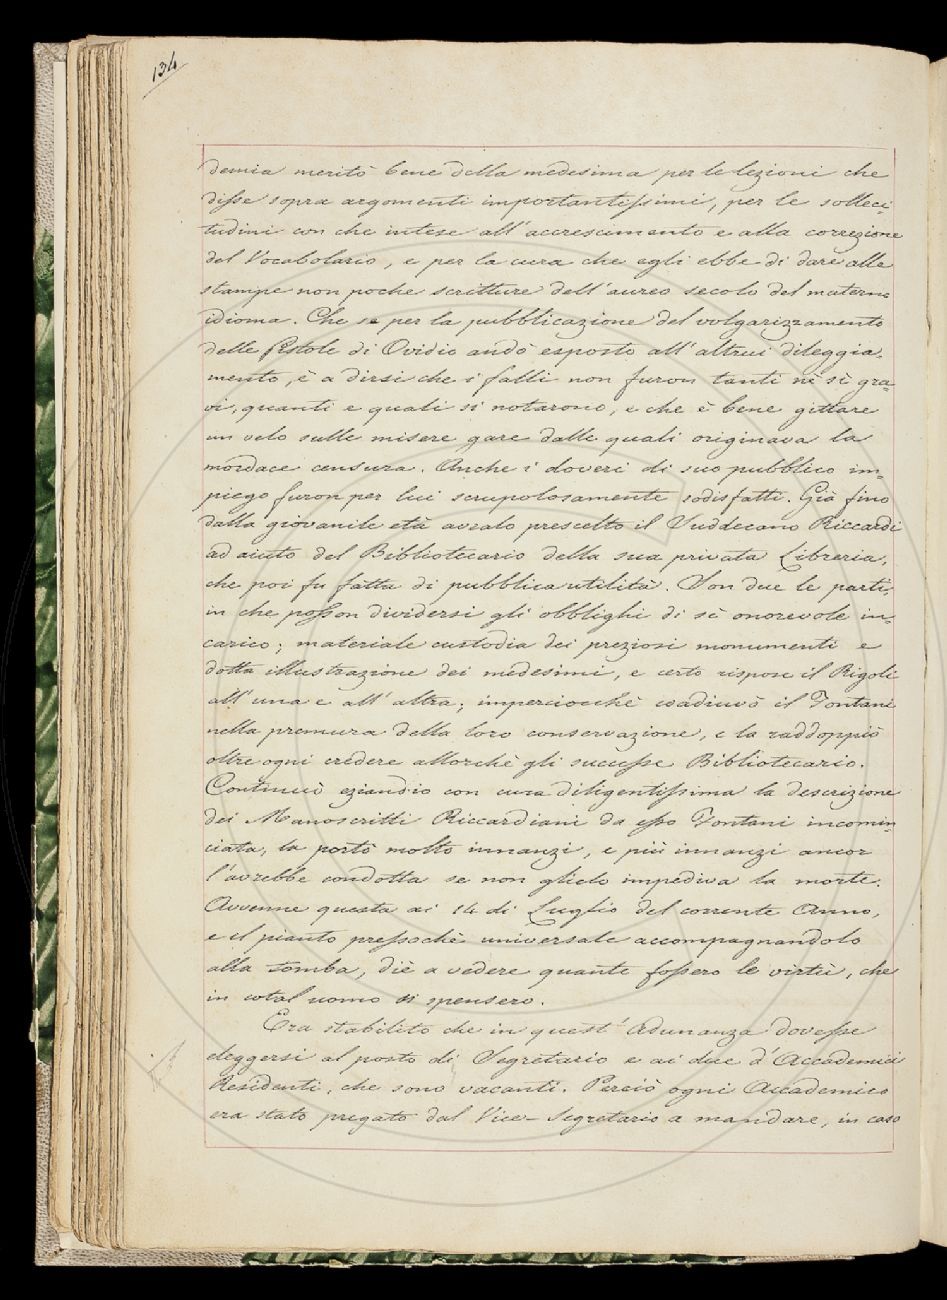 134
demia meritò bene della medesima per le lezioni che
disse sopra argomenti importantissimi, per le solleci-
tudini con che intese all'accrescimento e alla correzione
del Vocabolario, e per la cura che egli ebbe di dare alle
stampe non poche scritture dell'aureo secolo del materno
idioma. Che se per la pubblicazione del volgarizzamento
delle Pistole di Ovidio andò esposto all'altrui dileggia-
mento, è a dirsi che i falli non furon tanti nè sì gra-
vi, quanti e quali si notarono, e che è bene gittare
un velo sulle misere gare dalle quali originava la
mordace censura. Anche i doveri di suo pubblico im-
piego furon per lui scrupolosamente sodisfatti. Già fino
dalla giovanile età avealo prescelto il Suddecano Riccardi
ad aiuto del Bibliotecario della sua privata Libreria,
che poi fu fatta di pubblica utilità. Son due le parti,
in che posson dividersi gli obblighi di sì onorevole in-
carico; materiale custodia dei preziosi monumenti e
dotta illustrazione dei medesimi, e certo rispose il Rigoli
all'una e all'altra; imperciocchè coadiuvò il Fontani
nella premura della loro conservazione, e la raddoppiò
oltre ogni credere allorchè gli successe Bibliotecario.
Continuò eziandio con cura diligentissima la descrizione
dei Manoscritti Riccardiani da esso Fontani incomin-
ciata, la portò molto innanzi, e più innanzi ancor
l'avrebbe condotta se non glielo impediva la morte.
Avvenne questa ai 14 di Luglio del corrente Anno,
e il pianto pressochè universale accompagnandolo
alla tomba, diè a vedere quante fossero le virtù, che
in cotal uomo si spensero.
Era stabilito che in quest'Adunanza dovesse
eleggersi al posto di Segretario e ai due d'Accademici
Residenti, che sono vacanti. Perciò ogni Accademico
era stato pregato dal Vice-Segretario a mandare, in caso